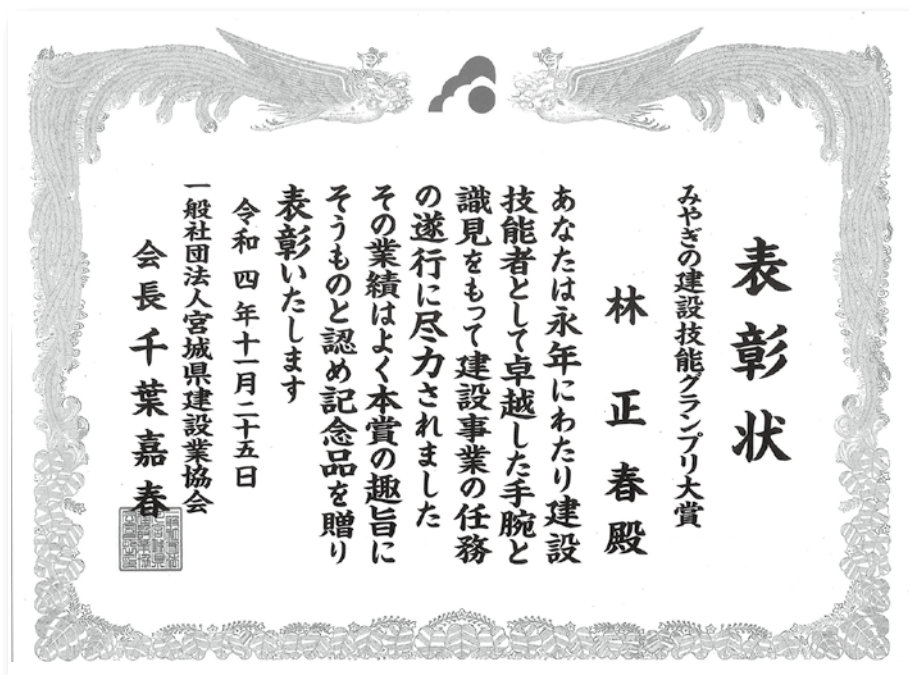 表彰状
みやぎの建設技能グランプリ大賞
林正春殿
あなたは永年にわたり建設
技能者として卓越した手腕と
識見をもって建設事業の任務
の遂行に尽力されました
その業績はよく本賞の趣旨に
そうものと認め記念品を贈り
表彰いたします
令和四年十一月二十五日
一般社団法人宮城県建設業協会
会長千葉嘉春